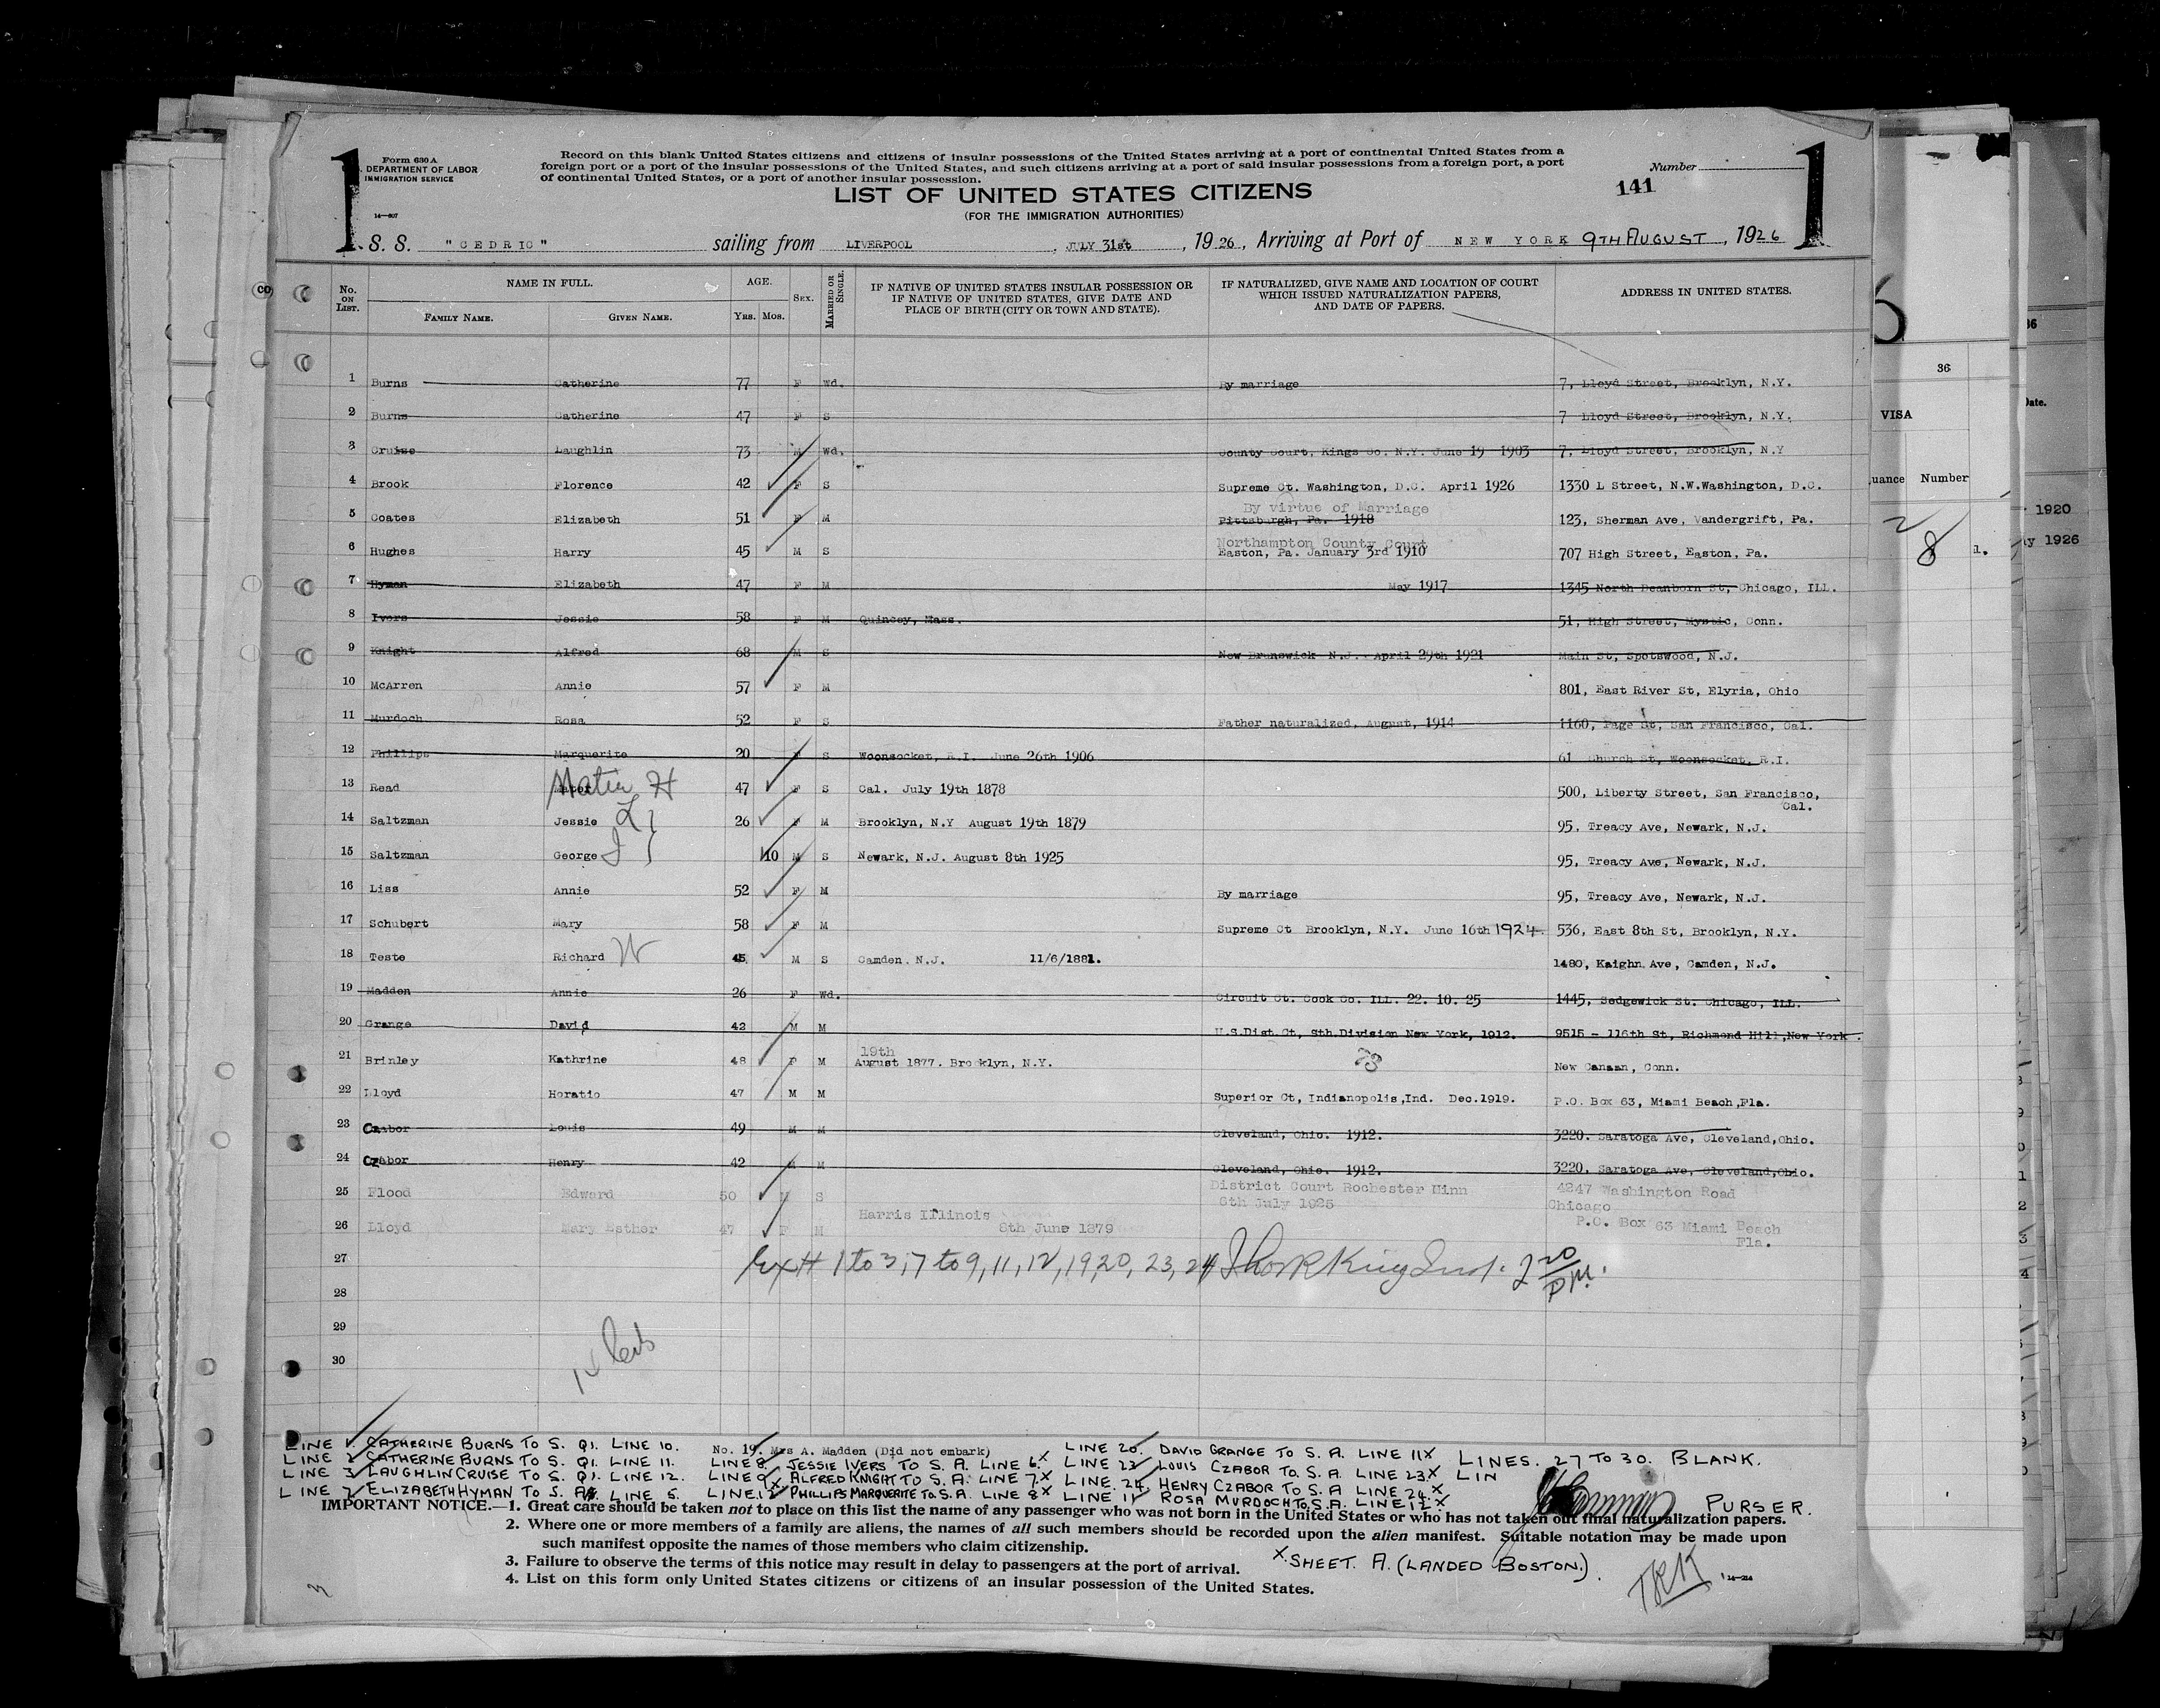 1
Form 630 A
DEPARTMENT OF LABOR
IMMIGRATION SERVICE
14—807
Record on this blank United States citizens and citizens of insular possessions of the United States arriving at a port of continental United States from a
foreign port or a port of the insular possessions of the United States, and such citizens arriving at a port of said insular possessions from a foreign port, a port
of continental United States, or a port of another insular possession.
LIST OF UNITED STATES CITIZENS
(FOR THE IMMIGRATION AUTHORITIES)
Number
141
1
S. S. "CEDRIC" sailing from LIVERPOOL, JULY 31st, 1926, Arriving at Port of NEW YORK 9TH AUGUST, 1926
No. ON LIST. NAME IN FULL. AGE. SEX. MARRIED OR SINGLE. IF NATIVE OF UNITED STATES INSULAR POSSESSION OR IF NATIVE OF UNITED STATES, GIVE DATE AND PLACE OF BIRTH (CITY OR TOWN AND STATE). IF NATURALIZED, GIVE NAME AND LOCATION OF COURT WHICH ISSUED NATURALIZATION PAPERS, AND DATE OF PAPERS. ADDRESS IN UNITED STATES.
FAMILY NAME. GIVEN NAME. YRS. MOS.
1 Burns Catherine 77 F Wd. By marriage 7, Lloyd Street, Brooklyn, N.Y.
2 Burns Catherine 47 F S 7 Lloyd Street, Brooklyn, N.Y.
3 Cruise Laughlin 73 M Wd. County Court, Kings Co. N.Y. June 19 1903 7, Lloyd Street, Brooklyn, N.Y
4 Brook Florence 42 F S Supreme Ct. Washington, D.C. April 1926 1330 L Street, N.W.Washington, D.C.
By virtue of Marriage
5 Coates Elizabeth 51 F M Pittsburgh, Pa. 1918 123, Sherman Ave, Vandergrift, Pa.
Northampton County Court
6 Hughes Harry 45 M S Easton, Pa. January 3rd 1910 707 High Street, Easton, Pa.
7 Hyman Elizabeth 47 F M May 1917 1345 North Deanborn St, Chicago, ILL.
8 Ivers Jessie 58 F M Quincey, Mass. 51, High Street, Mystic, Conn.
9 Knight Alfred 68 M S New Brunswick N.J. April 29th 1921 Main St, Spotswood, N.J.
10 McArren Annie 57 F M 801, East River St, Elyria, Ohio
11 Murdoch Rosa 52 F S Father naturalized, August, 1914 1160, Page St, San Francisco, Cal.
12 Phillips Marquerite 20 F S Woonsocket, R.I. June 26th 1906 61 Church St, Woonsocket, R.I.
13 Read Hatie H 47 F S Cal. July 19th 1878 500, Liberty Street, San Francisco,
Cal.
14 Saltzman Jessie L 26 F M Brooklyn, N.Y August 19th 1879 95, Treacy Ave, Newark, N.J.
15 Saltzman George J 10 M S Newark, N.J. August 8th 1925 95, Treacy Ave, Newark, N.J.
16 Liss Annie 52 F M By marriage 95, Treacy Ave, Newark, N.J.
17 Schubert Mary 58 F M Supreme Ct Brooklyn, N.Y. June 16th 1924 536, East 8th St, Brooklyn, N.Y.
18 Teste Richard W 45 M S Camden, N.J. 11/6/1881. 1480, Kaighn Ave, Camden, N.J.
19 Madden Annie 26 F Wd. Circuit Ct. Cook Co. ILL. 22. 10. 25 1445, Sedgewick St. Chicago, ILL.
20 Grange David 42 M M U.S.Dist.Ct, Sth.Division New York, 1912. 9515 - 116th St, Richmond Hill,New York.
19th
21 Brinley Kathrine 48 F M August 1877. Brooklyn, N.Y. New Canaan, Conn.
22 Lloyd Horatio 47 M M Superior Ct, Indianopolis,Ind. Dec.1919. P.O. Box 63, Miami Beach,Fla.
23 Czabor Louis 49 M M Cleveland, Ohio. 1912. 3220. Saratoga Ave, Cleveland,Ohio.
24 Czabor Henry 42 M M Cleveland, Ohio. 1912. 3220, Saratoga Ave, Cleveland,Ohio.
25 Flood Edward 50 M S District Court Rochester Minn 4247 Washington Road
6th July 1925 Chicago
Harris Illinois
26 Lloyd Mary Esther 47 F M 8th June 1879 P.O. Box 63 Miami Beach
Fla.
27 1 to 3, 7 to 9, 11, 12, 19, 20, 23, 24
28
29
30
LINE 1. CATHERINE BURNS TO S. Q1. LINE 10. No. 19. Mrs A. Madden (Did not embark) LINE 20. DAVID GRANGE TO S. A. LINE 11 X LINES. 27 TO 30. BLANK.
LINE 2 CATHERINE BURNS TO S. Q1. LINE 11. LINE 8. JESSIE IVERS TO S. A. LINE 6. X LINE 23 LOUIS CZABOR TO. S. A. LINE 23. X LIN
LINE 3. LAUGHLIN CRUISE TO S. Q1. LINE 12. LINE 9. ALFRED KNIGHT TO S. A. LINE 7. X LINE. 24. HENRY CZABOR TO S. A LINE 24. X
LINE 7. ELIZABETH HYMAN TO S. A. LINE 5. LINE 12 PHILLIPS MARQUERITE TO. S. A. LINE 8 X LINE 11 ROSA MURDOCH TO S. A. LINE 12. X
PURSER.
IMPORTANT NOTICE.—1. Great care should be taken not to place on this list the name of any passenger who was not born in the United States or who has not taken out final naturalization papers.
2. Where one or more members of a family are aliens, the names of all such members should be recorded upon the alien manifest. Suitable notation may be made upon
such manifest opposite the names of those members who claim citizenship.
3. Failure to observe the terms of this notice may result in delay to passengers at the port of arrival.
X. SHEET. A. (LANDED BOSTON).
4. List on this form only United States citizens or citizens of an insular possession of the United States.
36
VISA
uance Number
8
36
Date.
1920
1926